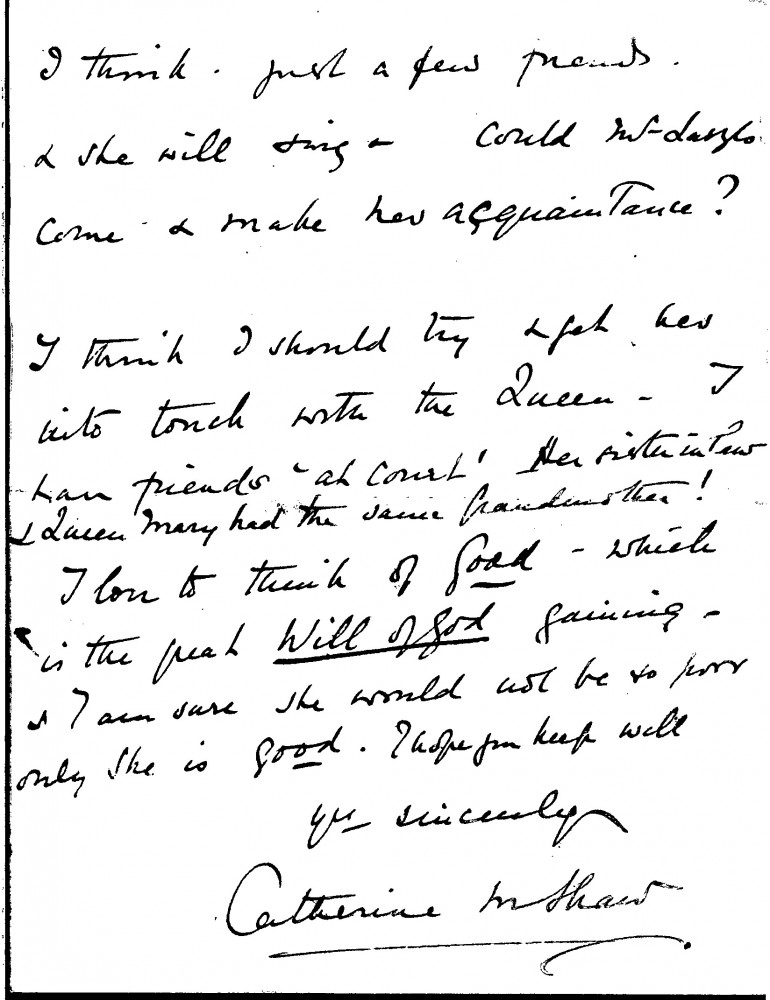 I think. just a few friends.
& she will sing – Could Mr Laszlo
Come & make her acquaintance?
I think I should try & get her
into touch with the Queen – I
have friends "at Court"! Her sister in law
& Queen Mary had the same Grandmother!
I love to think of Good – which
is the great Will of God gaining –
& I am sure she would not be so poor
only she is good. I hope you keep well
yrs sincerely
Catherine M Shaw